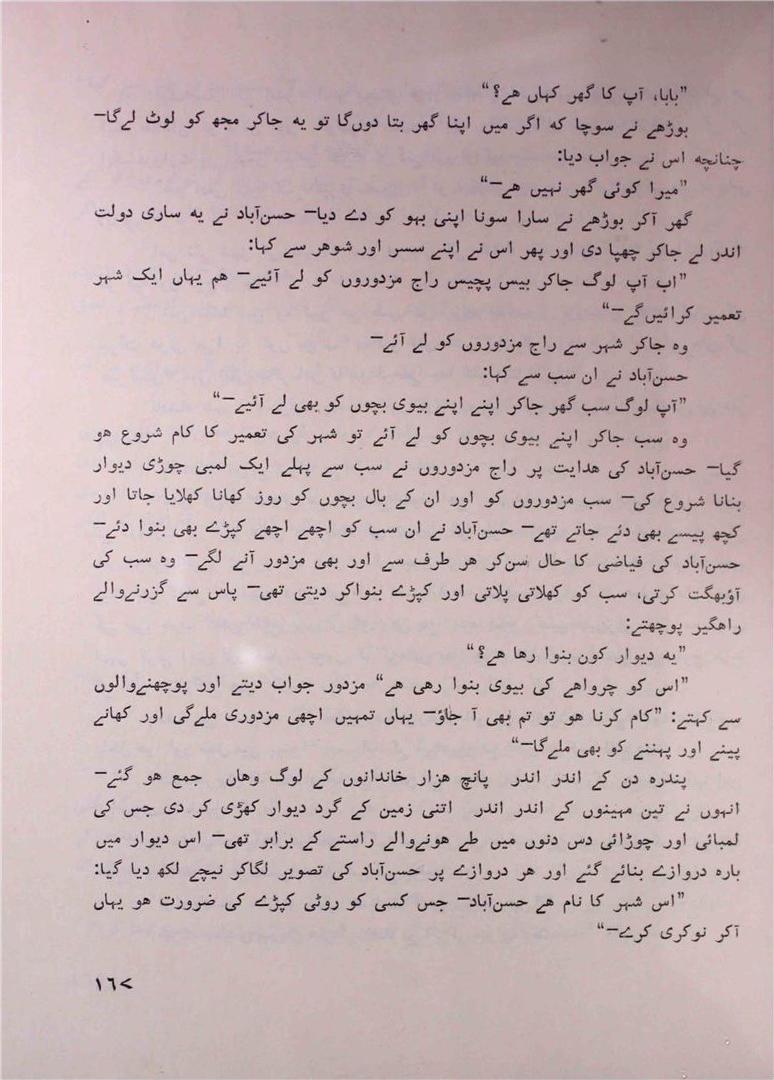 ”بابا، آپ کا گھر کہاں ھے؟“
بوڑھے نے سوچا کہ اگر میں اپنا گھر بتا دوں‌گا تو یہ جاکر مجھ کو لوٹ لےگا—
چنانچہ اس نے جواب دیا:
”میرا کوئی گھر نہیں ھے—“
گھر آکر بوڑھے نے سارا سونا اپنی بہو کو دے دیا— حسن‌آباد نے یہ ساری دولت
اندر لے جاکر چھپا دی اور پھر اس نے اپنے سسر اور شوھر سے کہا:
”اب آپ لوگ جاکر بیس پچیس راج مزدوروں کو لے آئیے— ھم یہاں ایک شہر
تعمیر کرائیں‌گے—“
وہ جاکر شہر سے راج مزدوروں کو لے آئے—
حسن‌آباد نے ان سب سے کہا:
”آپ لوگ سب گھر جاکر اپنے اپنے بیوی بچوں کو بھی لے آئیے—“
وہ سب جاکر اپنے بیوی بچوں کو لے آئے تو شہر کی تعمیر کا کام شروع ھو
گیا— حسن‌آباد کی ھدایت پر راج مزدوروں نے سب سے پہلے ایک لمبی چوڑی دیوار
بنانا شروع کی— سب مزدوروں کو اور ان کے بال بچوں کو روز کھانا کھلایا جاتا اور
کچھ پیسے بھی دئے جاتے تھے— حسن‌آباد نے ان سب کو اچھے اچھے کپڑے بھی بنوا دئے—
حسن‌آباد کی فیاضی کا حال سن‌کر ھر طرف سے اور بھی مزدور آنے لگے— وہ سب کی
آؤبھگت کرتی، سب کو کھلاتی پلاتی اور کپڑے بنواکر دیتی تھی— پاس سے گزرنےوالے
راھگیر پوچھتے:
”یہ دیوار کون بنوا رھا ھے؟“
”اس کو چرواھے کی بیوی بنوا رھی ھے“ مزدور جواب دیتے اور پوچھنےوالوں
سے کہتے: ”کام کرنا ھو تو تم بھی آ جاؤ— یہاں تمہیں اچھی مزدوری ملےگی اور کھانے
پینے اور پہننے کو بھی ملےگا—“
پندرہ دن کے اندر اندر پانچ ھزار خاندانوں کے لوگ وھاں جمع ھو گئے—
انہوں نے تین مہینوں کے اندر اندر اتنی زمین کے گرد دیوار کھڑی کر دی جس کی
لمبائی اور چوڑائی دس دنوں میں طے ھونےوالے راستے کے برابر تھی— اس دیوار میں
بارہ دروازے بنائے گئے اور ھر دروازے پر حسن‌آباد کی تصویر لگاکر نیچے لکھ دیا گیا:
”اس شہر کا نام ھے حسن‌آباد— جس کسی کو روٹی کپڑے کی ضرورت ھو یہاں
آکر نوکری کرے—“
۱۶۷